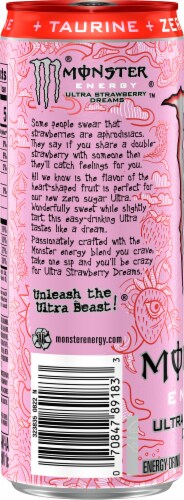 + TAURINE + ZE
MONSTER
ENERGY
ULTRA STRAWBERRY
DREAMS™
Some people swear that
strawberries are aphrodisiacs.
They say if you share a double
strawberry with someone then
they'll catch feelings for you.
All we know is the flavor of the
heart-shaped fruit is perfect for
our new zero sugar Ultra.
Wonderfully sweet while slightly
tart this easy-drinking Ultra
tastes like a dream.
Passionately crafted with the
Monster energy blend you crave,
take one sip and you'll be crazy
for Ultra Strawberry Dreams.
Unleash the
Ultra Beast!®
monsterenergy.com
0 70847 89183 3
MO
E
ULTRA
ENERGY DRINK